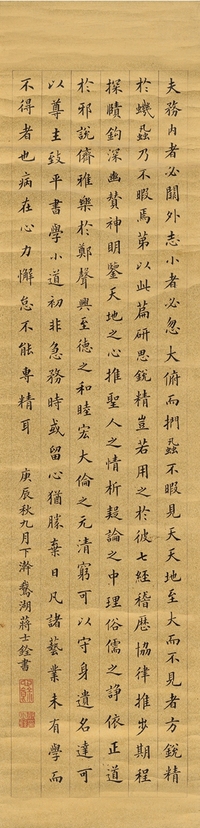 夫務內者必闕外志小者必忽大俯而捫蝨不暇見天天地至大而不見者方銳精
於蟣蝨乃不暇焉第以此篇研思銳精豈若用之於彼七經稽歷協律推步期程
探賾鉤深幽贊神明鑒天地之心推聖人之情析疑論之中理俗儒之諍依正道
於邪說儕雅樂於鄭聲興至德之和睦宏大倫之元清窮可以守身遺名達可
以尊主致平書學小道初非急務時或留心猶勝棄日凡諸藝業未有學而
不得者也病在心力懈怠不能專精耳
庚辰秋九月下澣鵞湖蔣士銓書